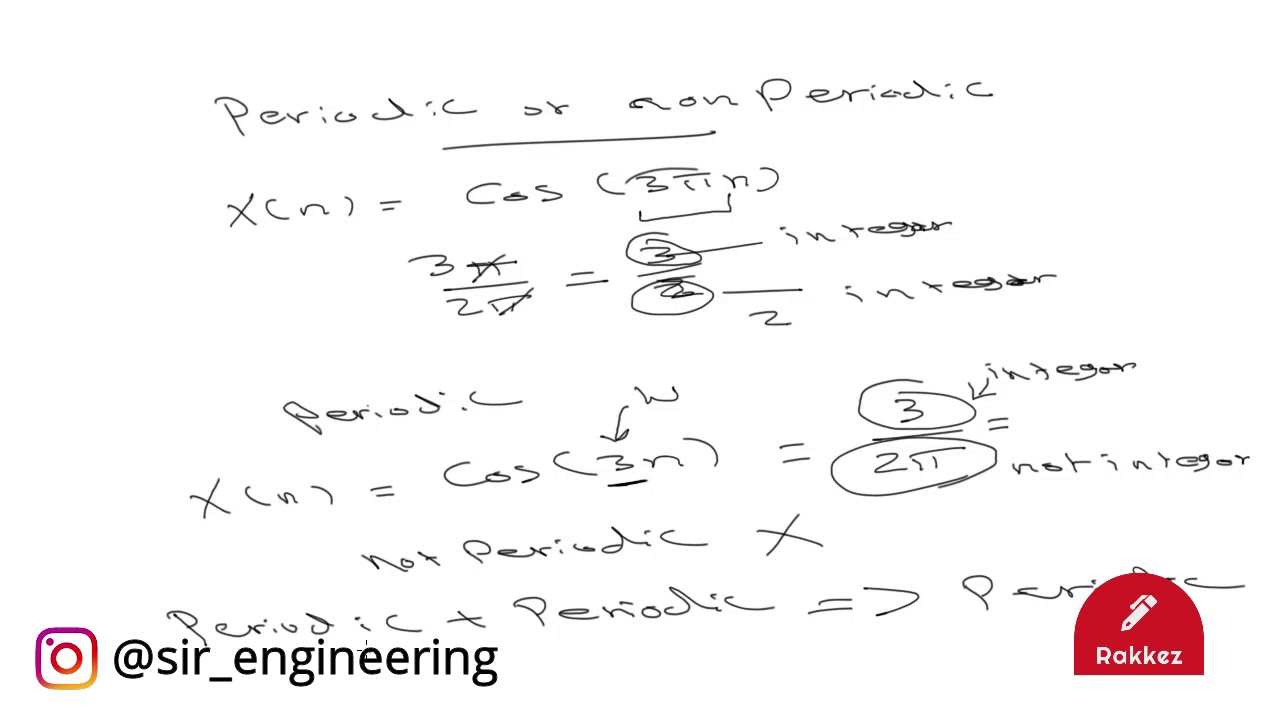 Periodic or non Periodic
x(n) = cos (3πn)
3π/2π = 3/2 integer
2 integer
Periodic
w
integer
x(n) = cos (3n) = 3/2π =
not integer
not Periodic X
Periodic + Periodic => Periodic
@sir_engineering
Rakkez